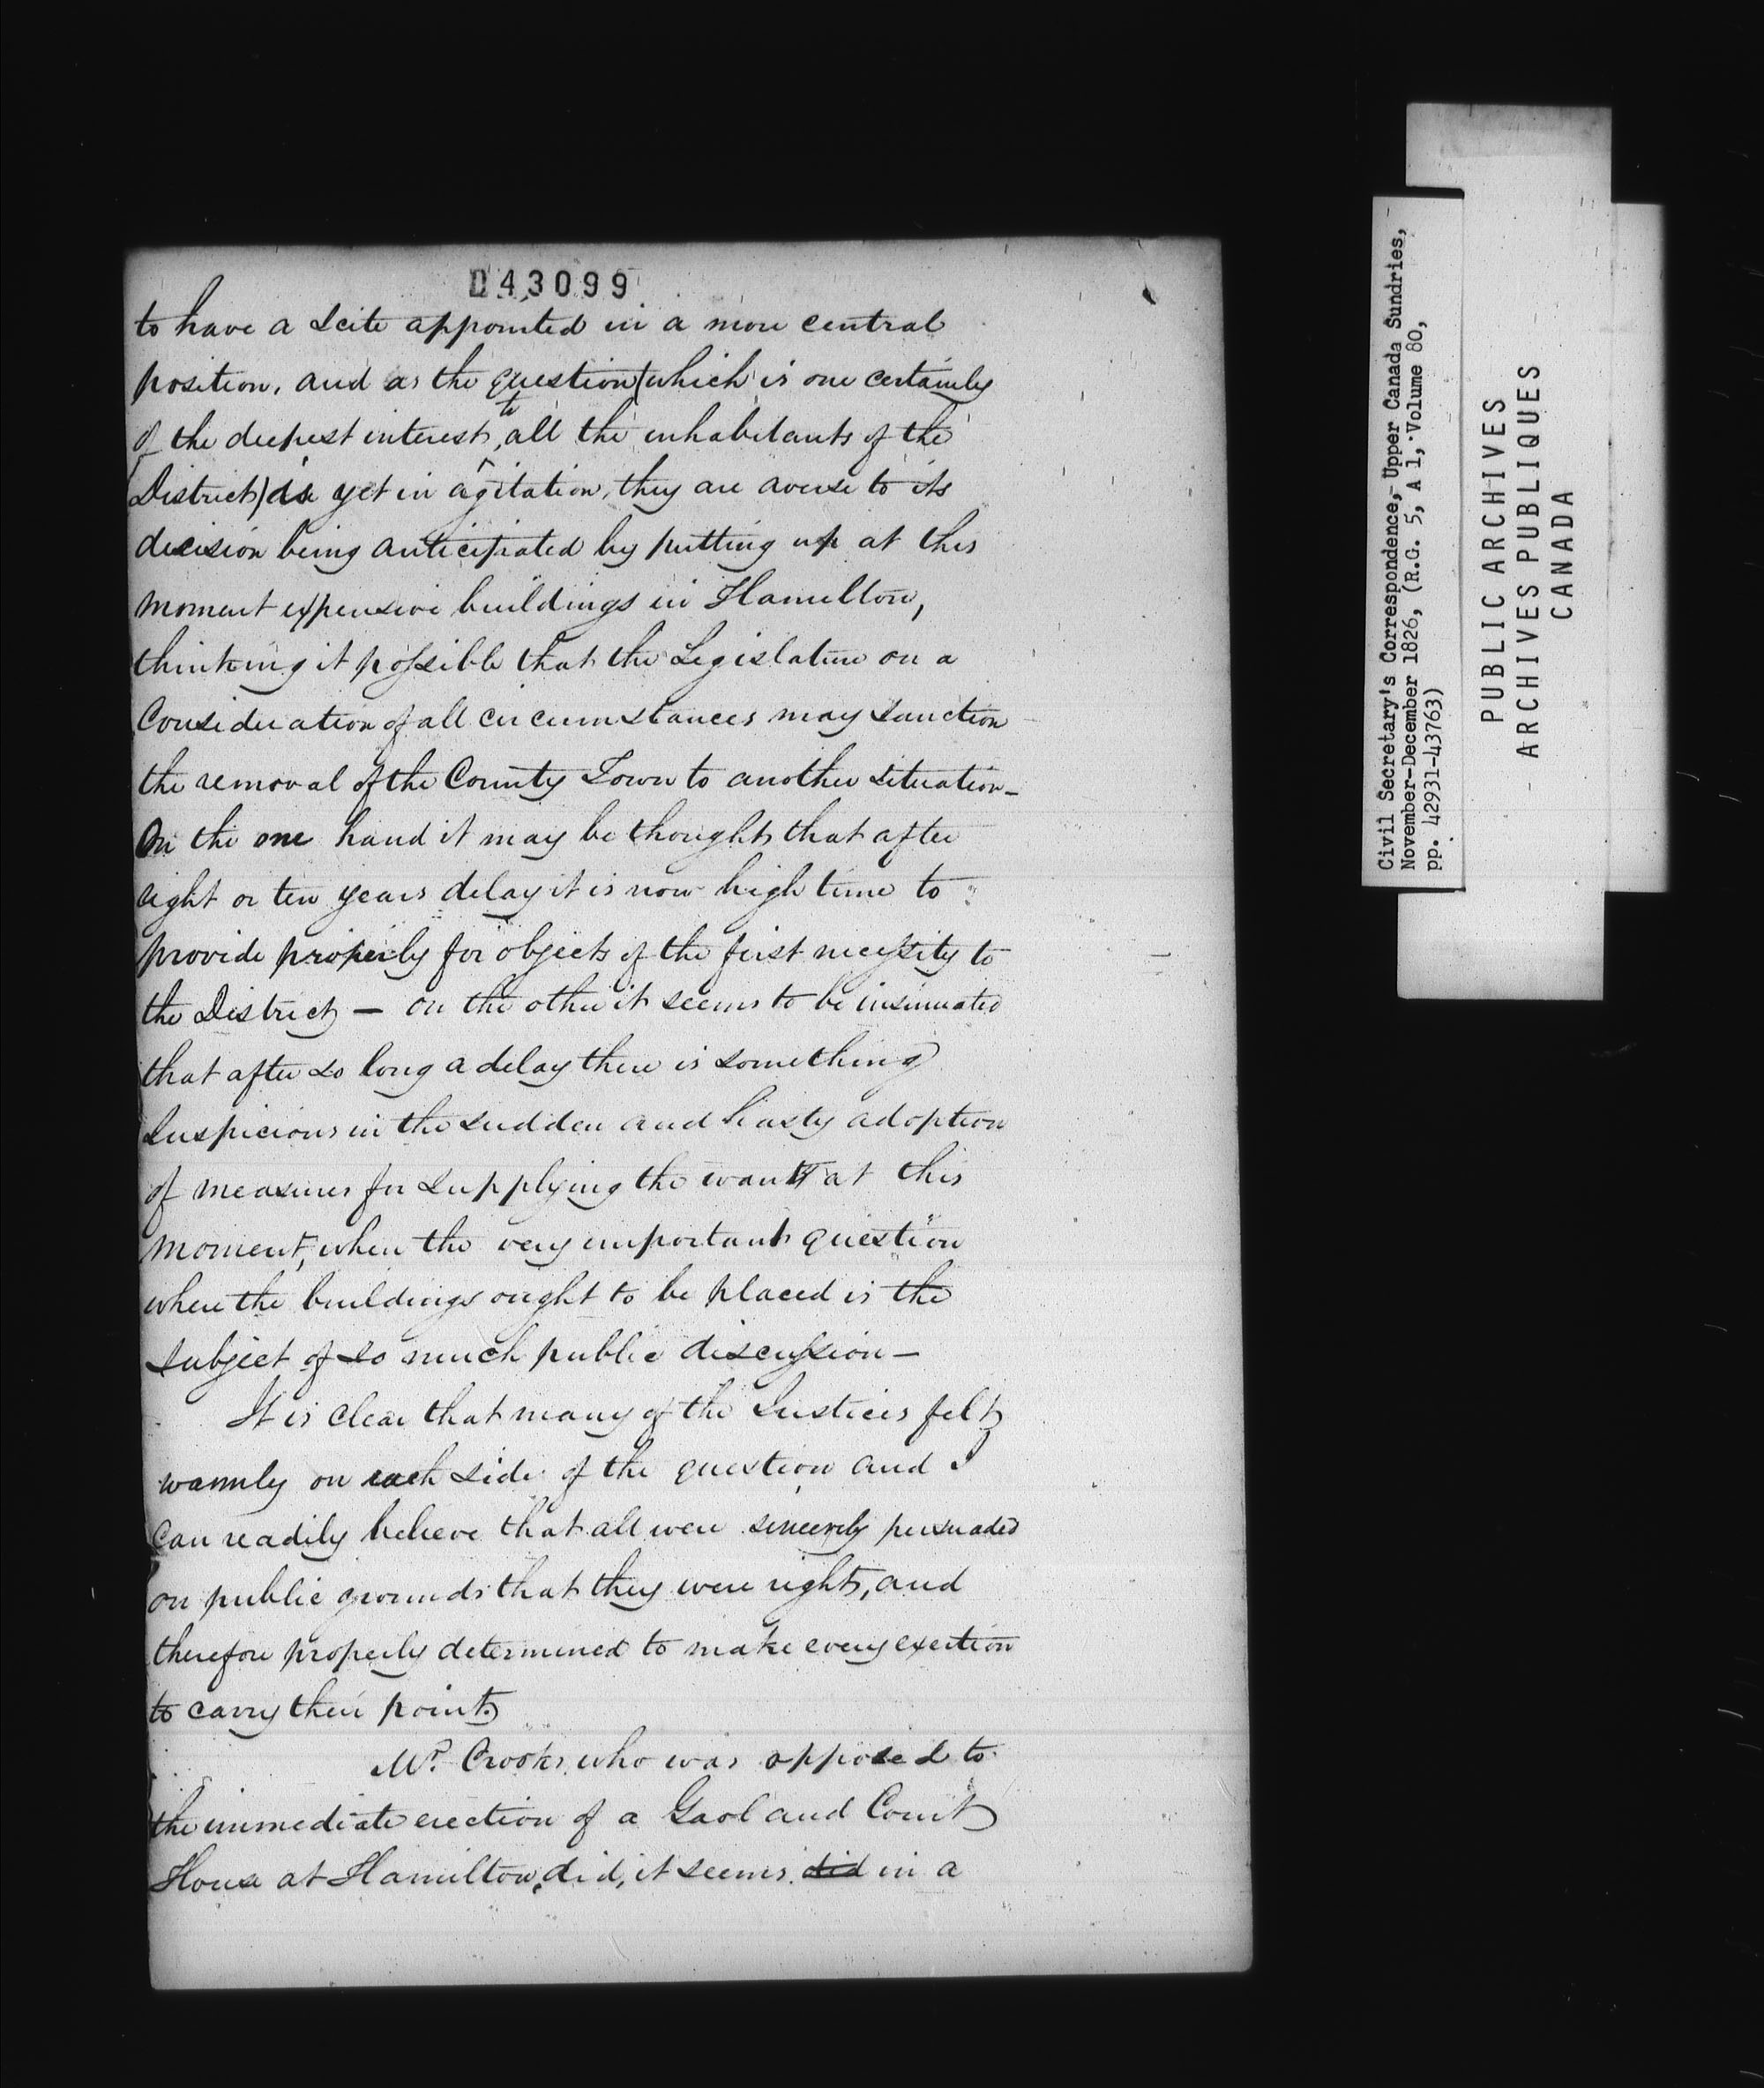 043099
to have a scite appointed in a more central
position, and as the question (which is one certainly
of the deepest interest to all the inhabitants of the
District) is yet in agitation, they are averse to its
decision being anticipated by putting up at this
moment expensive buildings in Hamilton,
thinking it possible that the Legislature on a
Consideration of all circumstances may sanction
the removal of the County Town to another situation_
On the one hand it may be thought that after
eight or ten years delay it is now high time to
provide properly for objects of the first necessity to
the District — on the other it seems to be insinuated
that after so long a delay there is something
suspicious in the sudden and hasty adoption
of measures for supplying the want at this
moment, when the very important question
where the buildings ought to be placed is the
subject of so much public discussion —
It is clear that many of the Justices felt
warmly on each side of the question and I
can readily believe that all were sincerely persuaded
on public grounds that they were right, and
therefore properly determined to make every exertion
to carry their point.
Mr. Crooks, who was opposed to
the immediate erection of a Gaol and Court
House at Hamilton, did, it seems did in a
Civil Secretary's Correspondence, Upper Canada Sundries,
November-December 1826, (R.G. 5, A 1, Volume 80,
pp. 42931-43763)
PUBLIC ARCHIVES
ARCHIVES PUBLIQUES
CANADA